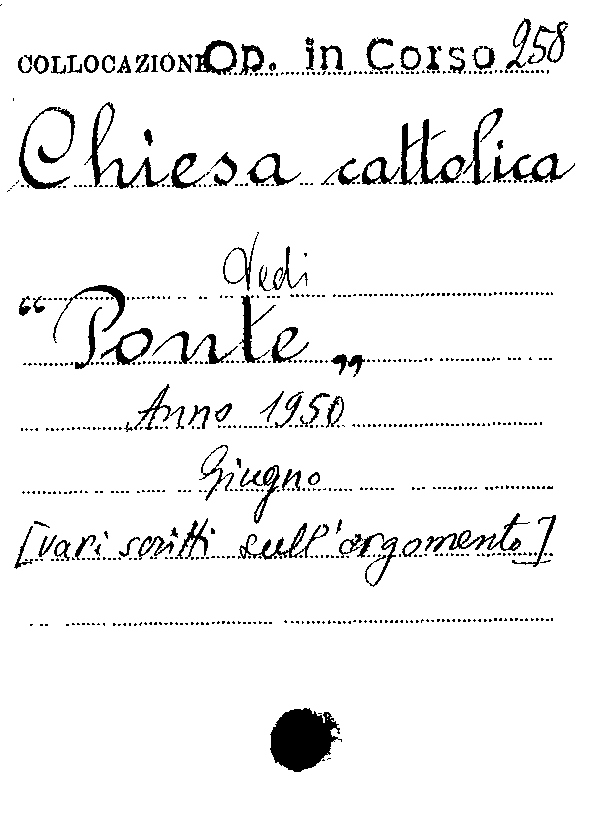 COLLOCAZIONE Op. in Corso 258
Chiesa cattolica
Vedi
“Ponte„
Anno 1950
Giugno
[vari scritti sull'argomento]